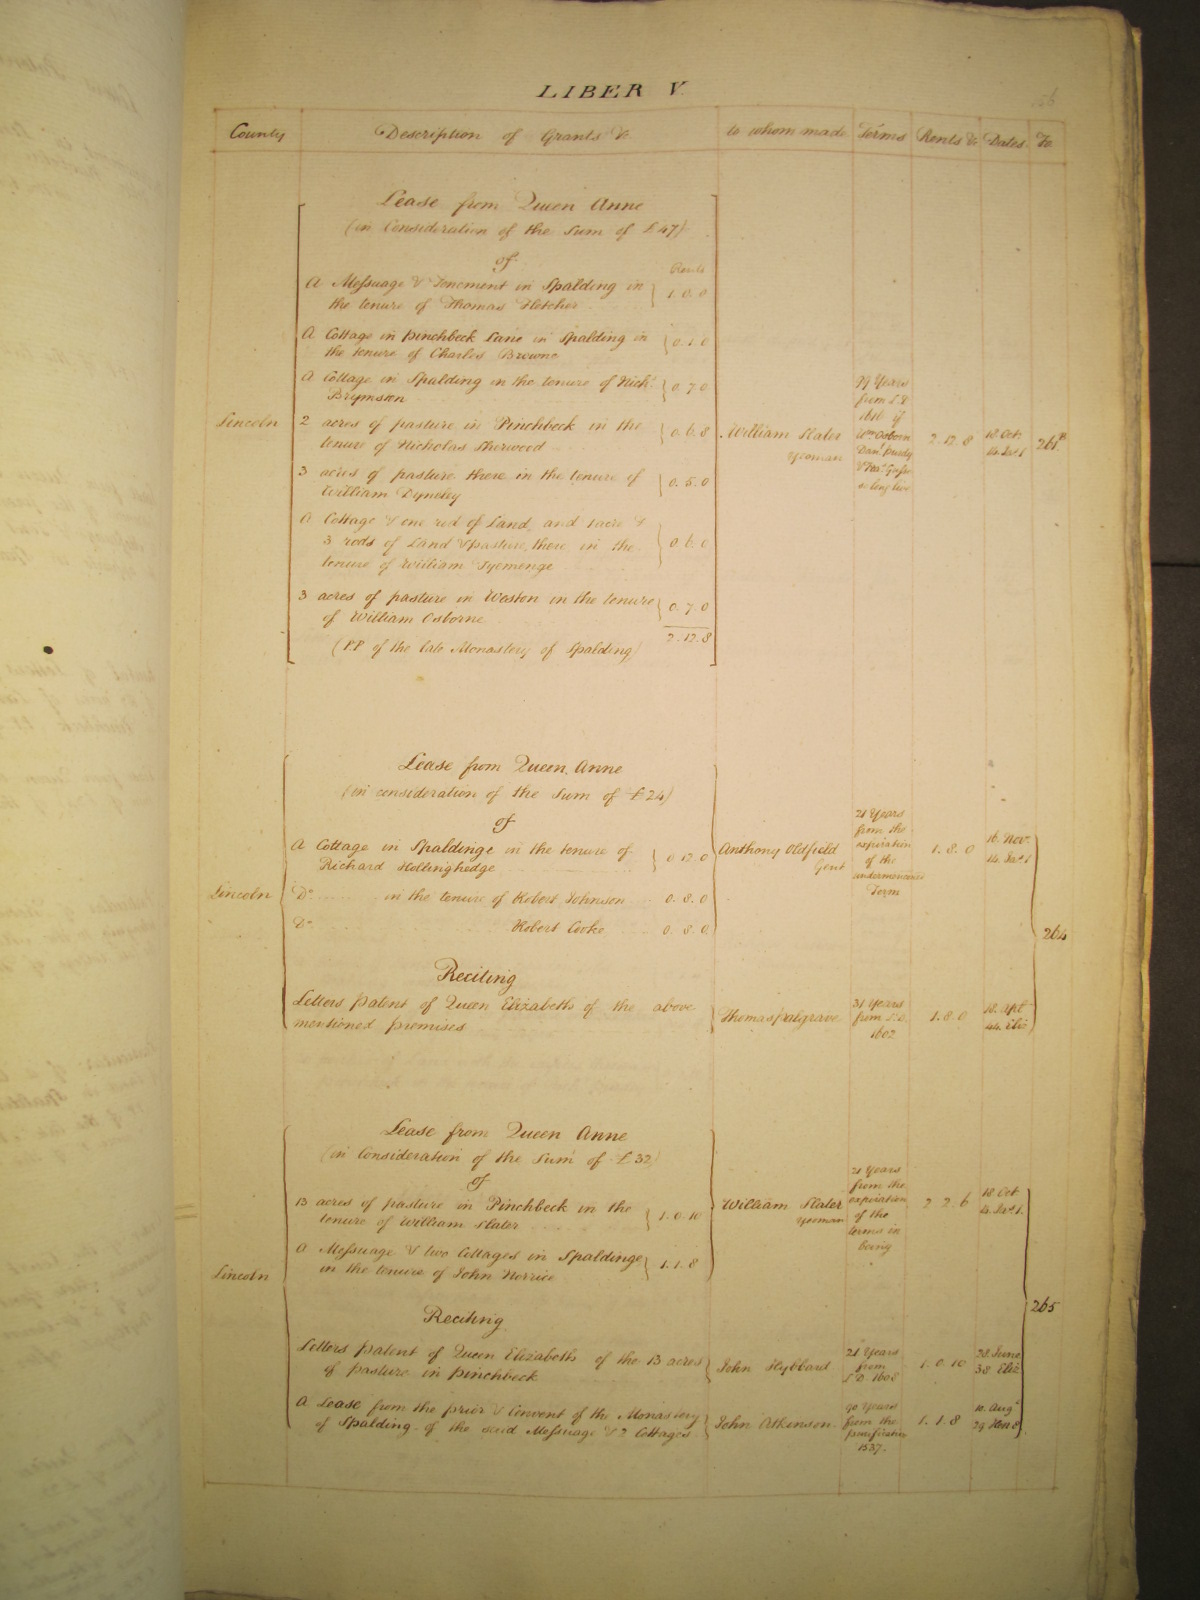 LIBER V.
County Description of Grants &c to whom made Terms Rents &c Dates Fo
Lease from Queen Anne
(in Consideration of the Sum of £47)
of
Rents
A Messuage & Tenement in Spalding in
the tenure of Thomas Fletcher } 1.0.0
A Cottage in Pinchbeck Lane in Spalding in
the tenure of Charles Browne } 0.1.0
A Cottage in Spalding in the tenure of Nich.s
Brymston } 0.7.0
Lincoln
2 acres of pasture in Pinchbeck in the
tenure of Nicholas Sherwood } 0.6.8
3 acres of pasture there in the tenure of
William Dyneley } 0.5.0
A Cottage & one rod of Land, and 1 acre &
3 rods of Land & pasture, there, in the
tenure of William } 0.6.0
3 acres of pasture in Weston in the tenure
of William Osborne } 0.7.0
2.12.8
(P.P. of the late Monastery of Spalding)
William Slater
yeoman
99 Years
from L.D.
1616 if
Wm Osborn
Danl
&
so long live
2.12.8
18 Oct.
14 Jas 1
261.B
Lease from Queen Anne
(in consideration of the Sum of £24)
of
A Cottage in Spaldinge in the tenure of
Richard Hollinghedge } 0.12.0
Lincoln
Do in the tenure of Robert Johnson 0.8.0
Do Robert Cooke 0.8.0
Anthony Oldfield
Gent
21 Years
from the
expiration
of the
undermentioned
Term
1.8.0
16 Nov.
14 Jas 1
264
Reciting
Letters patent of Queen Elizabeth of the above
mentioned premises
Thomas Palgrave
31 Years
from L.D.
1602
1.8.0
18 Apl
44 Eliz
Lease from Queen Anne
(in Consideration of the Sum of £32)
of
13 acres of pasture in Pinchbeck in the
tenure of William Slater } 1.0.10
A Messuage & two Cottages in Spaldinge
in the tenure of John Norrice } 1.1.8
Lincoln
William Slater
yeoman
21 Years
from the
expiration
of the
terms in
being
2.2.6
18 Oct
14 Jas 1.
265
Reciting
Letters patent of Queen Elizabeth of the 13 acres
of pasture in pinchbeck
John Hybbard
21 Years
from
L.D. 1608
1.0.10
28 June
38 Eliz
A Lease from the prior & Convent of the Monastery
of Spalding of the said Messuage & 2 Cottages
John Atkinson.
90 Years
from the
purification
1537.
1.1.8
10 Aug.t
29 Hen 8